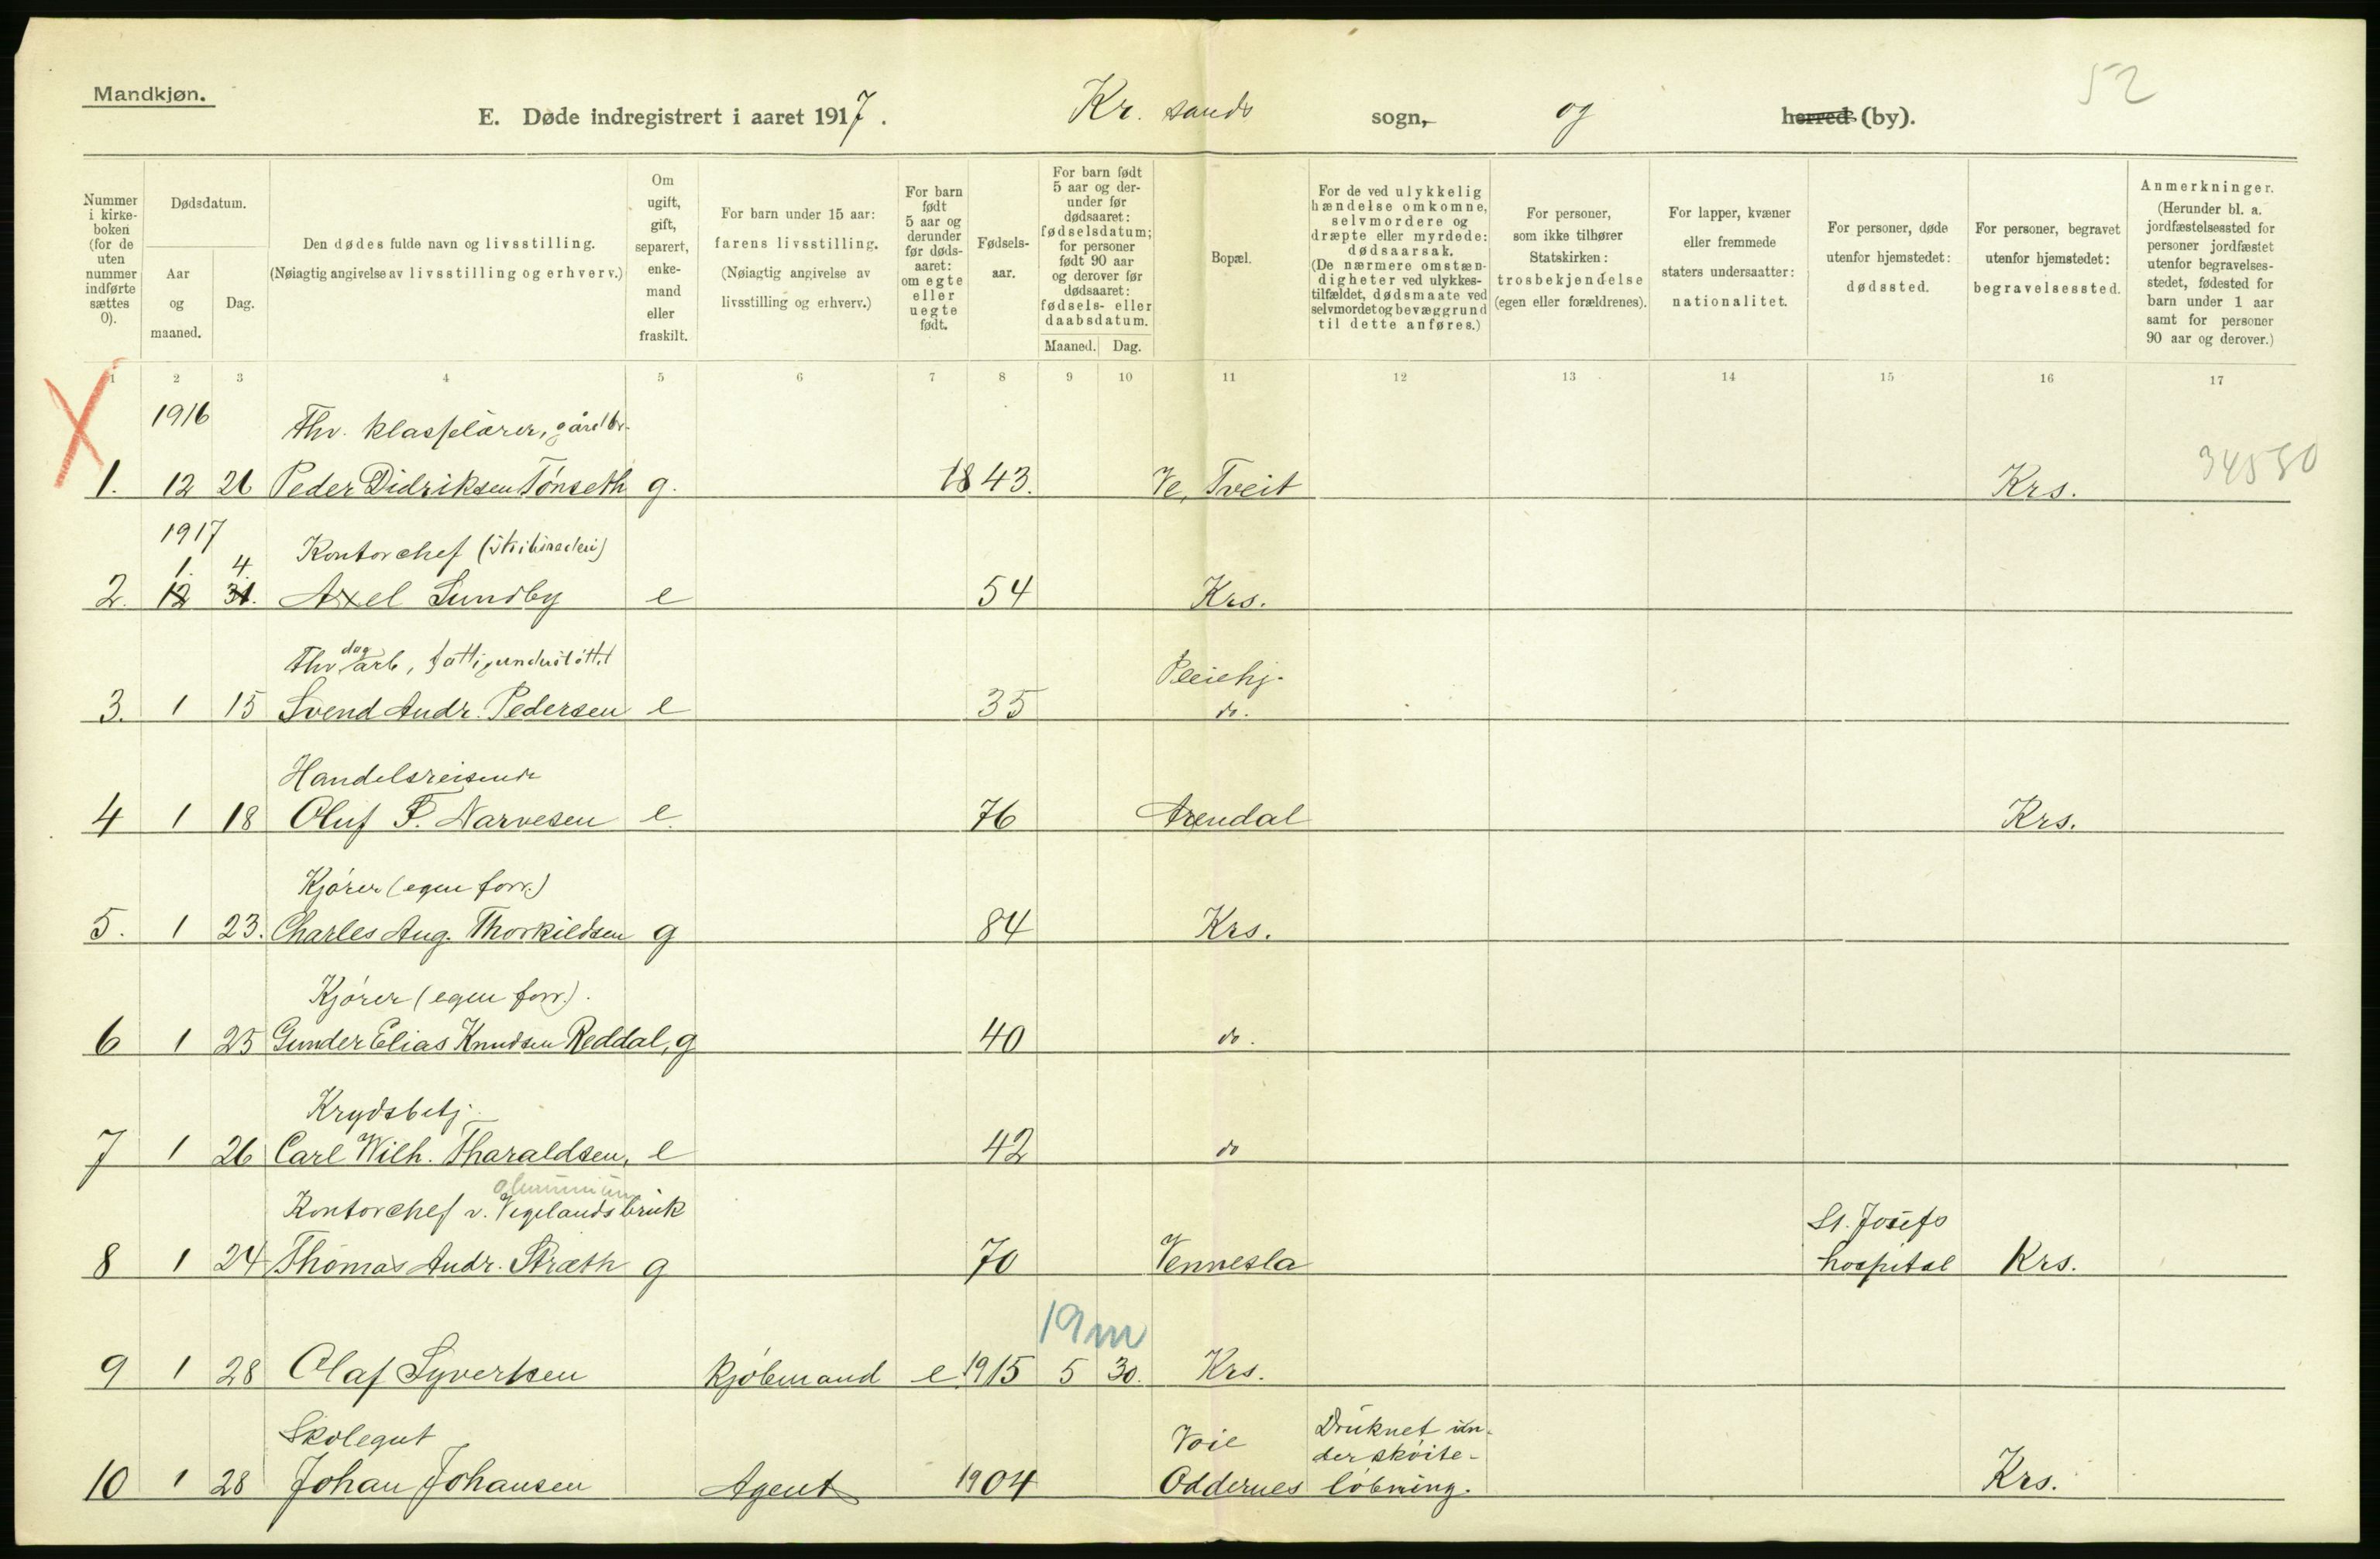 Mandkjøn.
52
E. Døde indregistrert i aaret 1917. Kr. sands sogn, og herred (by).
Nummer i kirkeboken (for de uten nummer indførte sættes 0).
Dødsdatum.
Aar og maaned.
Dag.
Den dødes fulde navn og livsstilling.
(Nøiagtig angivelse av livsstilling og erhverv.)
Om ugift, gift, separert, enkemand eller fraskilt.
For barn under 15 aar: farens livsstilling.
(Nøiagtig angivelse av livsstilling og erhverv.)
For barn født 5 aar og derunder før dødsaaret: om egte eller uegte født.
Fødselsaar.
For barn født 5 aar og derunder før dødsaaret: fødselsdatum; for personer født 90 aar og derover før dødsaaret: fødsels- eller daabsdatum.
Maaned. Dag.
Bopæl.
For de ved ulykkelig hændelse omkomne, selvmordere og dræpte eller myrdede: dødsaarsak.
(De nærmere omstændigheter ved ulykkestilfældet, dødsmaate ved selvmordet og bevæggrund til dette anføres.)
For personer, som ikke tilhører Statskirken: trosbekjendelse (egen eller forældrenes).
For lapper, kvæner eller fremmede staters undersaatter: nationalitet.
For personer, døde utenfor hjemstedet: dødssted.
For personer, begravet utenfor hjemstedet: begravelsessted.
Anmerkninger.
(Herunder bl. a. jordfæstelsessted for personer jordfæstet utenfor begravelsesstedet, fødested for barn under 1 aar samt for personer 90 aar og derover.)
1 2 3 4 5 6 7 8 9 10 11 12 13 14 15 16 17
X 1916 Fhv. klasselærer, gårdbr.
1. 12 21 Peder Didriksen Tönseth g. 1843. Ve, Tveit Krs. 34580
1917 1. 4. Kontorchef (skibsrederi)
2. 12 31. Axel Sundby e 54 Krs.
Fhv dagarb, fattigunderstöttet Pleiehj.
3. 1 15 Svend Andr. Pedersen e 35 do.
Handelsreisende
4 1 18 Oluf F. Narvesen e. 76 Arendal Krs.
Kjörer (egen forr.)
5. 1 23. Charles Aug. Thorkildsen g 84 Krs.
Kjörer (egen forr.).
6 1 25 Gunder Elias Knudsen Reddal, g 40 do.
Krydsbetj.
7 1 26 Carl Wilh. Tharaldsen, e 42 do
aluminium
Kontorchef v. Vigelands bruk St. Josefs
8 1 24 Thomas Andr. Stræth g 70 Vennesla hospital Krs.
19 m
9 1 28 Olaf Syvertsen kjöbmand e. 1915 5 30. Krs.
Skolegut Voie Druknet un-
der sköite-
10 1 28 Johan Johansen Agent 1904 Oddernes löbning. Krs.